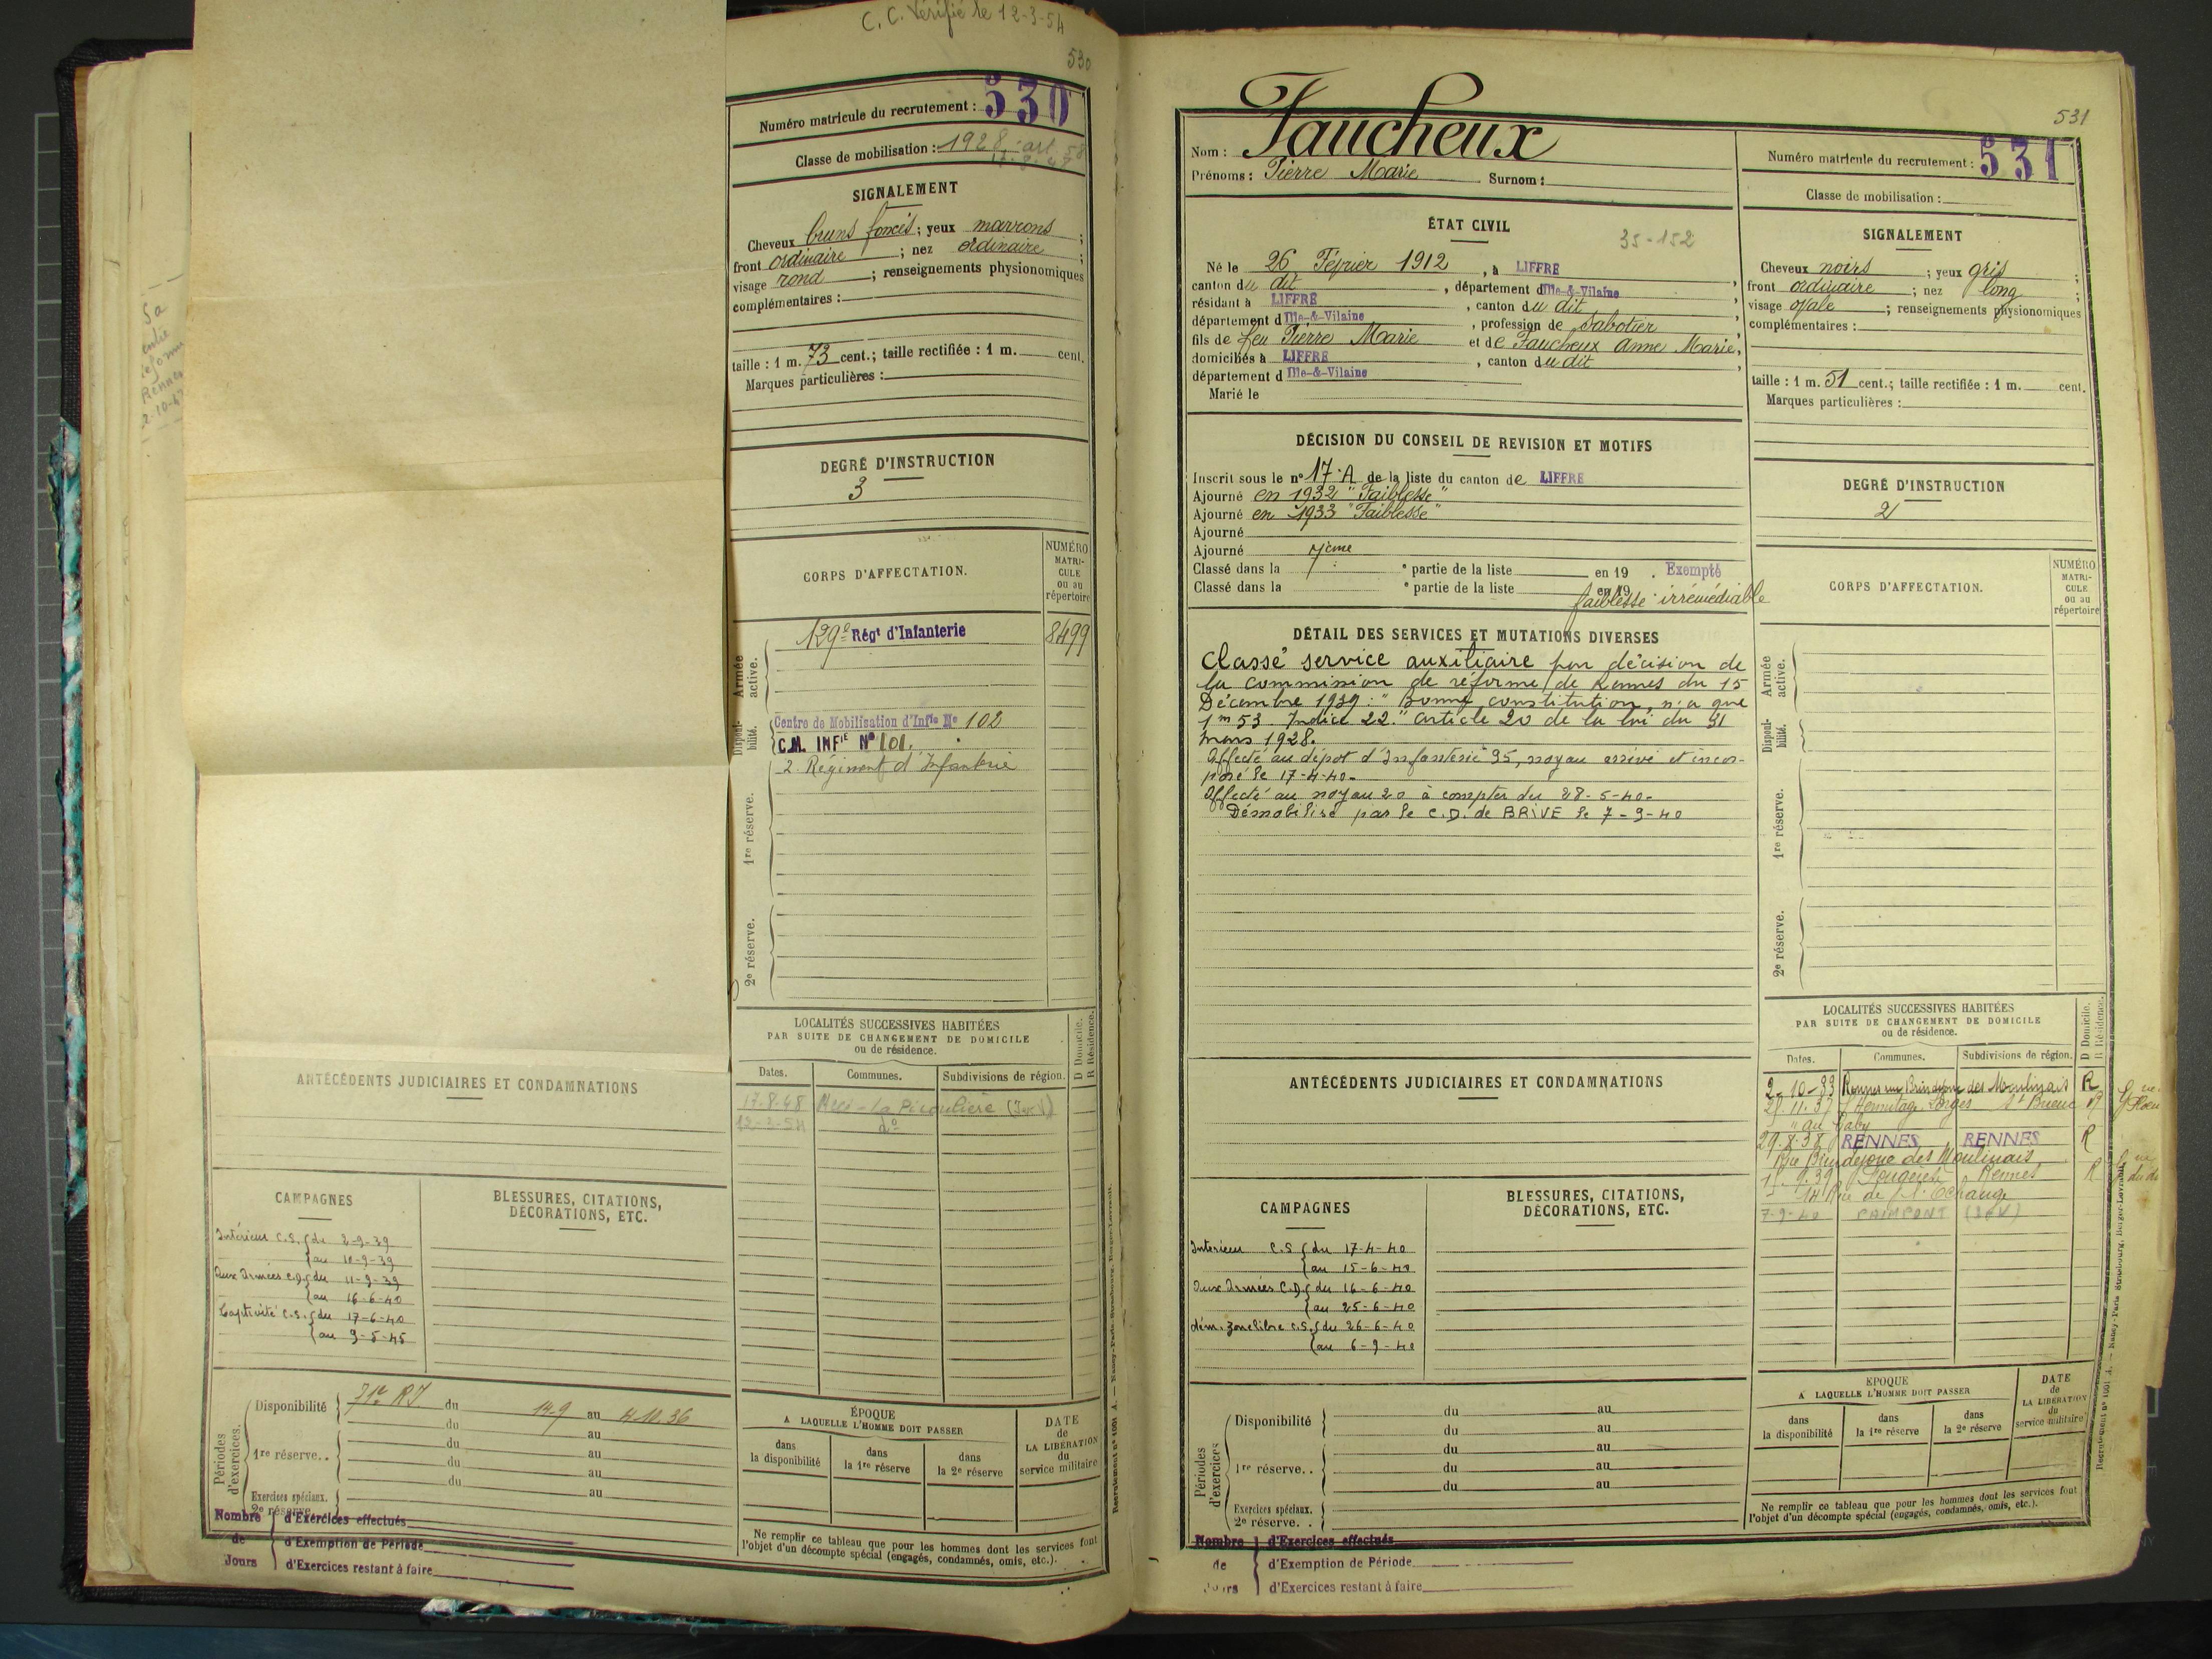 C. C. Vérifié le 12-3-54
530
Numéro matricule du recrutement : 530
Classe de mobilisation : 1928 art. 58
17-8-48
SIGNALEMENT
Cheveux bruns foncés ; yeux marrons ;
front ordinaire ; nez ordinaire ;
visage rond ; renseignements physionomiques
complémentaires :
taille : 1 m. 73 cent.; taille rectifiée : 1 m. cent.
Marques particulières :
DEGRÉ D'INSTRUCTION
3
CORPS D'AFFECTATION.
NUMÉRO
MATRI-
CULE
ou au
répertoire
Armée active.
129e Régt d'Infanterie 8499
Disponi-bilité.
Centre de Mobilisation d'Infie No 102
C.M. INFIE No 101.
2. Régiment d'Infanterie
1re réserve.
2e réserve.
LOCALITÉS SUCCESSIVES HABITÉES
PAR SUITE DE CHANGEMENT DE DOMICILE
ou de résidence.
D Domicile.
R Résidence.
Dates. Communes. Subdivisions de région.
17.8.48
12-3-54 do
ANTÉCÉDENTS JUDICIAIRES ET CONDAMNATIONS
CAMPAGNES
BLESSURES, CITATIONS,
DÉCORATIONS, ETC.
Intérieur C.S. du 2-9-39
au 10-9-39
Aux Armées C.D. du 11-9-39
au 16-6-40
Captivité C.S. du 17-6-40
au 9-5-45
Périodes d'exercices.
Disponibilité 71e RI du 14-9 au 4.10.36
du au
1re réserve.. du au
du au
du au
Exercices spéciaux.
2e réserve
Nombre de Jours
d'Exercices effectués
d'Exemption de Période
d'Exercices restant à faire
ÉPOQUE
A LAQUELLE L'HOMME DOIT PASSER
dans la disponibilité
dans la 1re réserve
dans la 2e réserve
DATE
de
LA LIBÉRATION
du
service militaire
Ne remplir ce tableau que pour les hommes dont les services font
l'objet d'un décompte spécial (engagés, condamnés, omis, etc.).
531
Nom : Faucheux
Prénoms : Pierre Marie Surnom :
Numéro matricule du recrutement : 531
Classe de mobilisation :
ÉTAT CIVIL
35-152
Né le 26 Février 1912, à LIFFRE
canton du dit, département d Ille-&-Vilaine,
résidant à LIFFRE, canton du dit,
département d Ille-&-Vilaine, profession de Sabotier
fils de feu Pierre Marie et de Faucheux Anne Marie,
domiciliés à LIFFRE, canton du dit,
département d Ille-&-Vilaine
Marié le
SIGNALEMENT
Cheveux noirs ; yeux gris ;
front ordinaire ; nez long ;
visage ovale ; renseignements physionomiques
complémentaires :
taille : 1 m. 51 cent.; taille rectifiée : 1 m. cent.
Marques particulières :
DÉCISION DU CONSEIL DE REVISION ET MOTIFS
Inscrit sous le no 17 A de la liste du canton de LIFFRE
Ajourné en 1932 "Faiblesse"
Ajourné en 1933 "Faiblesse"
Ajourné
Ajourné
Classé dans la 7ème e partie de la liste en 19 . Exempté
Classé dans la e partie de la liste en 19
faiblesse irrémédiable
DEGRÉ D'INSTRUCTION
2
DÉTAIL DES SERVICES ET MUTATIONS DIVERSES
Classé service auxiliaire par décision de
la commission de réforme de Rennes du 15
Décembre 1939 : "Bonne constitution, n'a que
1m53. Indice 22." article 20 de la loi du 31
mars 1928.
Affecté au dépôt d'Infanterie 35, noyau arrivé et incor-
poré le 17-4-40.
Affecté au noyau 20 à compter du 28-5-40.
Démobilisé par le C.D. de BRIVE le 7-9-40
CORPS D'AFFECTATION.
NUMÉRO
MATRI-
CULE
ou au
répertoire
Armée active.
Disponi-bilité.
1re réserve.
2e réserve.
ANTÉCÉDENTS JUDICIAIRES ET CONDAMNATIONS
LOCALITÉS SUCCESSIVES HABITÉES
PAR SUITE DE CHANGEMENT DE DOMICILE
ou de résidence.
D Domicile.
R Résidence.
Dates. Communes. Subdivisions de région.
2.10-33 Rennes rue Brindejonc des Moulinais R
21.11.37 l'Hermitage Lorges St Brieuc R
29.8.38 RENNES RENNES R
Rue Brindejonc des Moulinais
15.9.39 Fougères Rennes R
14 Rue de l'Echange
7-9-40 PAIMPONT (I&V)
CAMPAGNES
BLESSURES, CITATIONS,
DÉCORATIONS, ETC.
Intérieur C.S. du 17-4-40
au 15-6-40
Aux Armées C.D. du 16-6-40
au 25-6-40
dém. zone libre C.S. du 26-6-40
au 6-9-40
Périodes d'exercices
Disponibilité du au
du au
1re réserve.. du au
du au
du au
Exercices spéciaux.
2e réserve..
Nombre de Jours
d'Exercices effectués
d'Exemption de Période
d'Exercices restant à faire
ÉPOQUE
A LAQUELLE L'HOMME DOIT PASSER
dans la disponibilité
dans la 1re réserve
dans la 2e réserve
DATE
de
LA LIBÉRATION
du
service militaire
Ne remplir ce tableau que pour les hommes dont les services font
l'objet d'un décompte spécial (engagés, condamnés, omis, etc.).